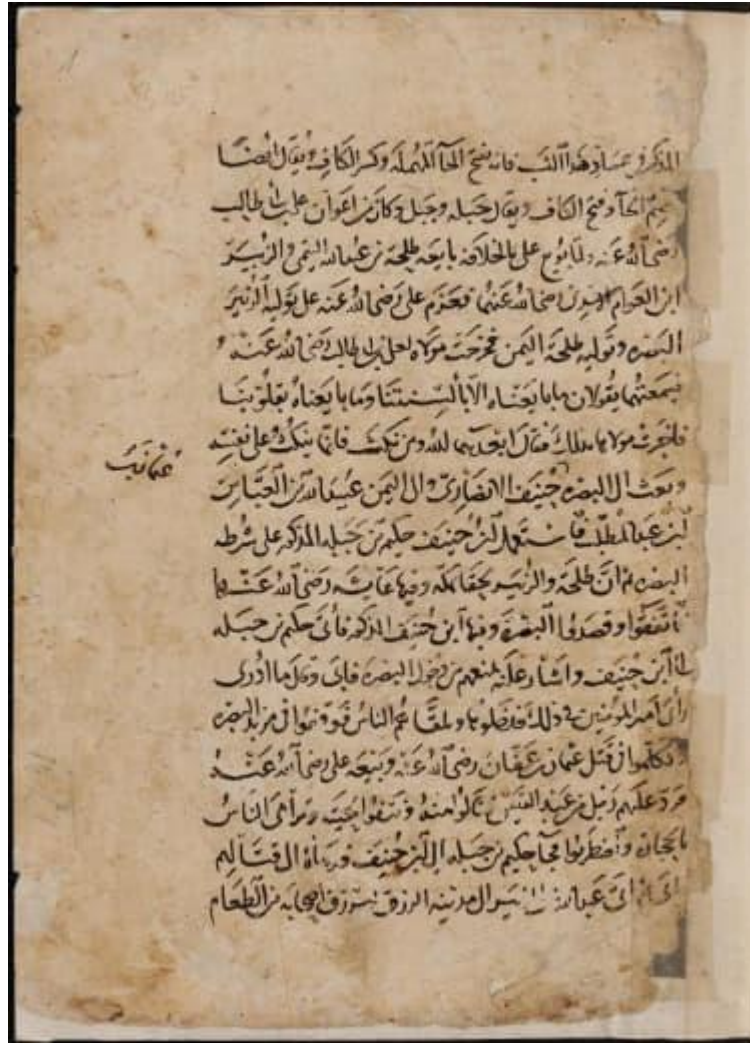 المذكور في عمود هذا النسب فانه بفتح الحاء المهملة وكسر الكاف ويقال ايضا
بضم الحاء وفتح الكاف ويقال جبله وجبل وكان من اعوان علي بن ابي طالب
رضى الله عنه ولما بويع على بالخلافه بايعه طلحة بن عبيد الله التيمى والزبير
ابن العوام الاسدى رضى الله عنهما فعزم على رضى الله عنه على توليه الزبير
البصره وتوليه طلحة اليمن فخرجت مولاة لعلى بن ابى طالب رضى الله عنه
فسمعتهما يقولان ما بايعناه الا بالسنتنا وما بايعناه بقلوبنا
فاخبرت مولاها بذلك فقال ابعدهما الله ومن نكث فانما ينكث على نفسه
وبعث الى البصره حنيف الانصارى والى اليمن عبيد الله بن العباس
عثمان بن
ابن عبد المطلب فاستعمل ابن حنيف حكيم بن جبله المذكور على شرطه
البصره ثم ان طلحة والزبير لحقا بمكه وفيها عائشه رضى الله عنها
فاتفقوا وقصدوا البصرة وفيها ابن حنيف المذكور فاتى حكيم بن جبله
الى ابن حنيف واشار عليه بمنعهم من دخول البصره فابى وقال ما ادرى
راى امير المومنين فى ذلك فدخلوها ولقاهم الناس فوقفوا فى مربد البصره
وتكلموا فى قتل عثمان بن عفان رضى الله عنه وبيعه على رضى الله عنه
فرد عليهم رجل من عبد القيس فنالوا منه ونتفوا لحيته وترامى الناس
بالحجاره واضطربوا فجآ حكيم بن جبله الى ابن حنيف ودعاه الى قتالهم
فابى ثم اتى عبد الله بن الزبير الى مدينه الرزق ليرزق اصحابه من الطعام